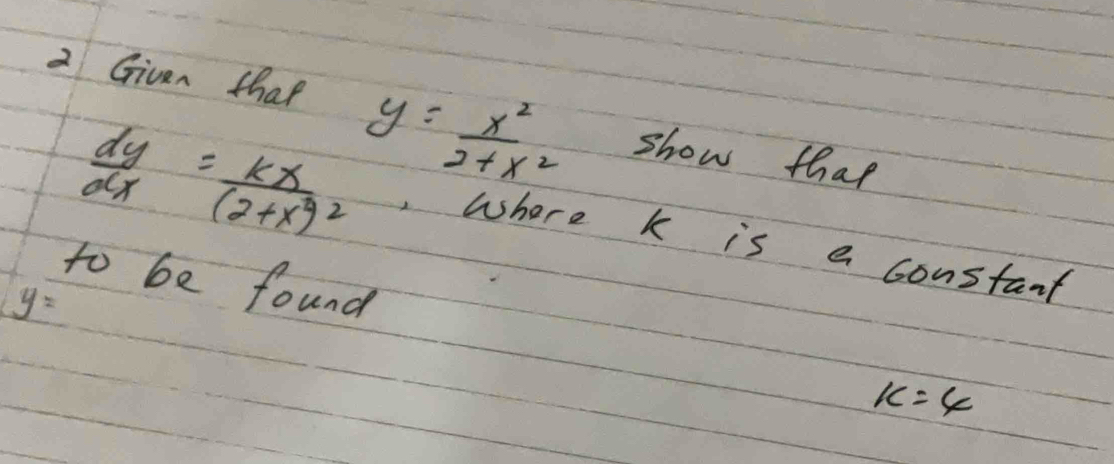 2 Given that y = x²/(2+x²) show that
dy/dx = kx/(2+x²)², where k is a constant
to be found
y=
k=4